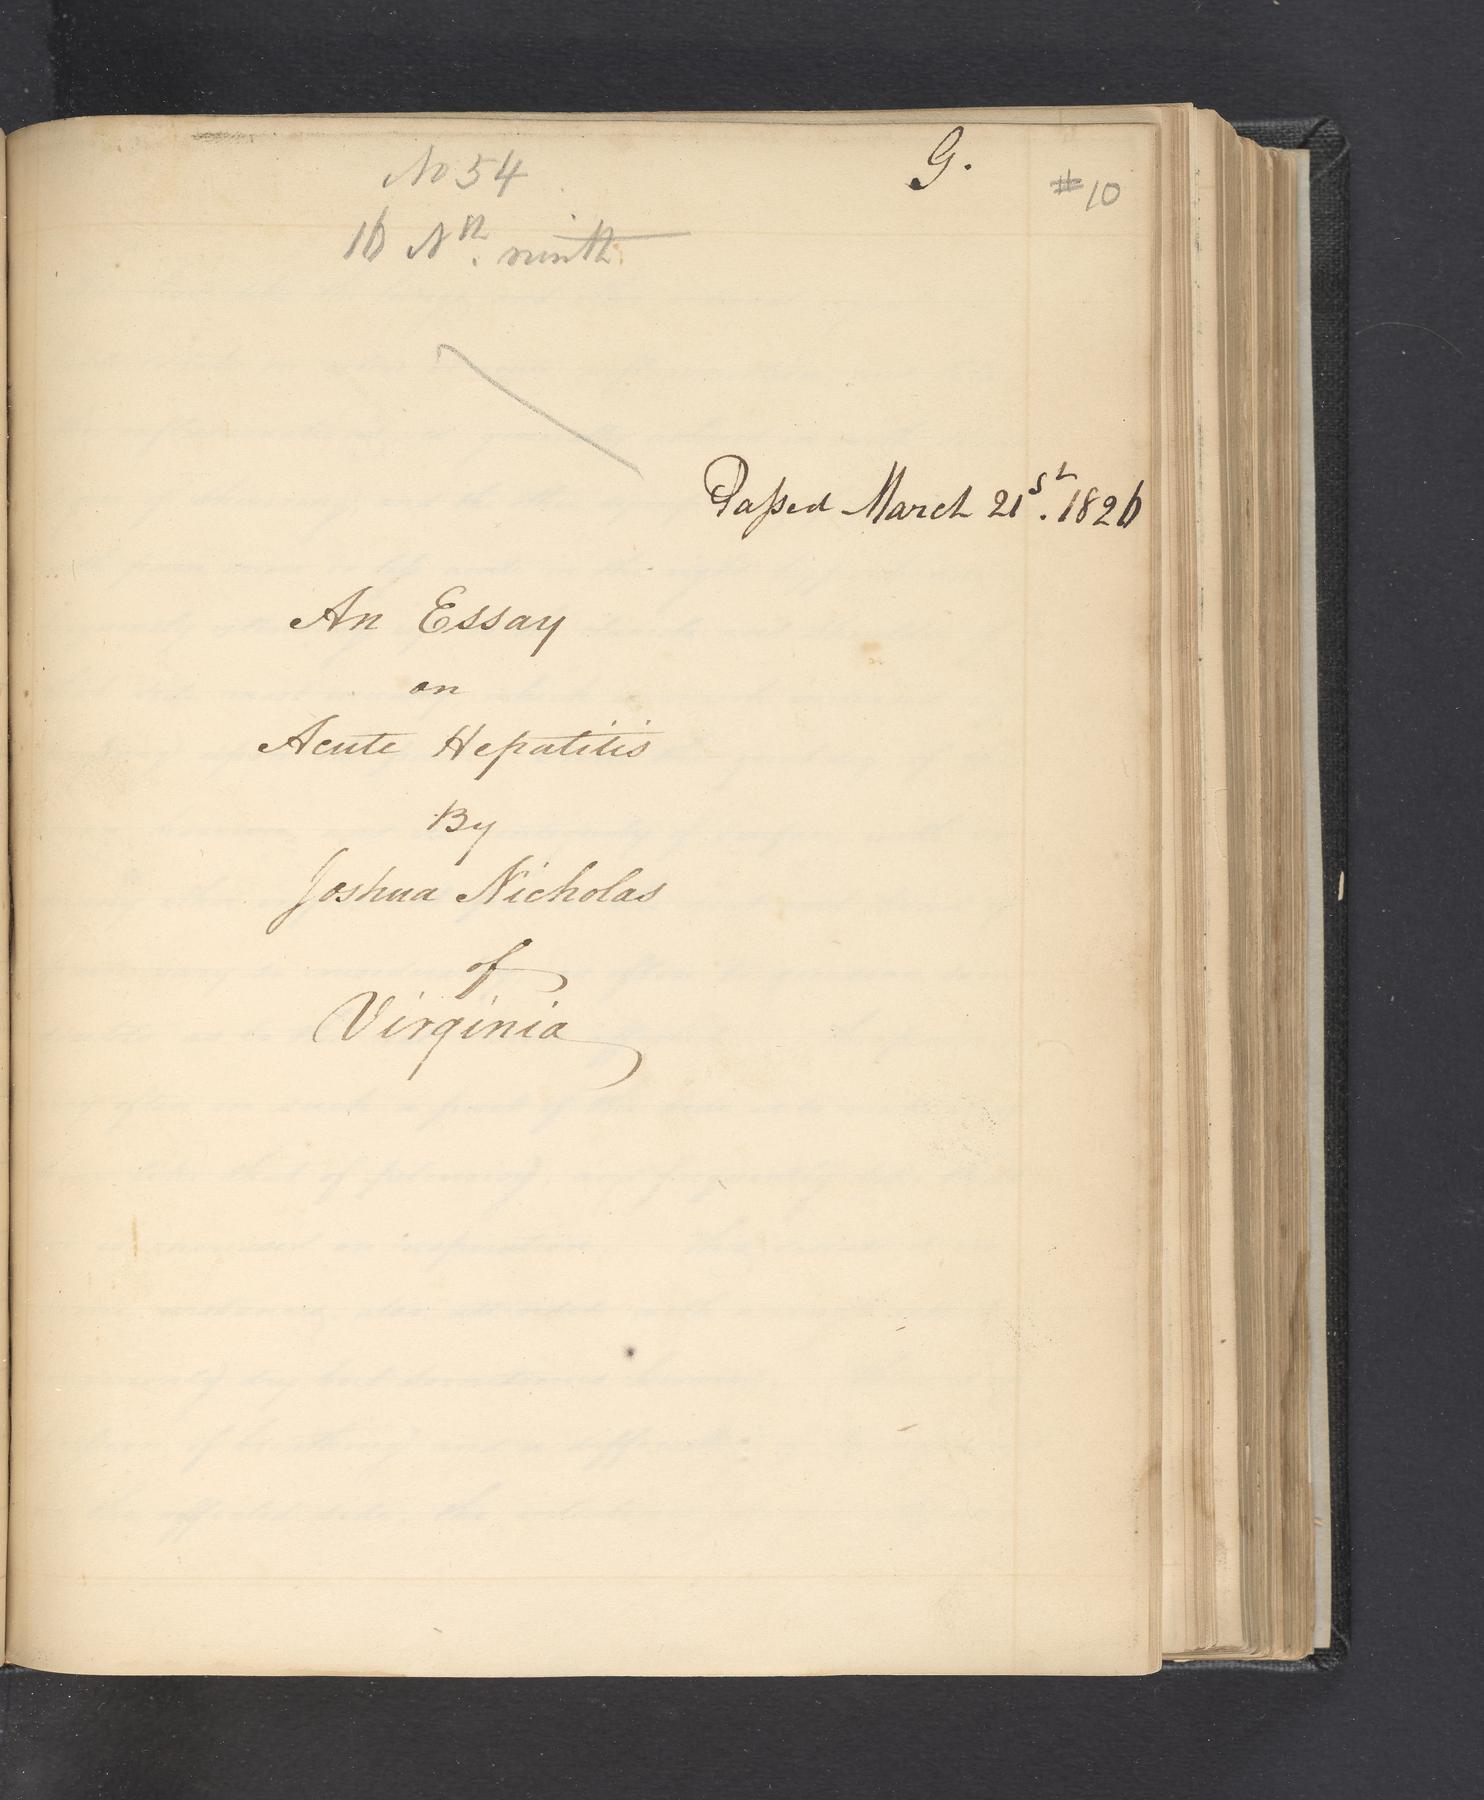 No 54
G.
#10
16 Nth. ninth
Passed March 21st. 1826
An Essay
on
Acute Hepatitis
By
Joshua Nicholas
of
Virginia